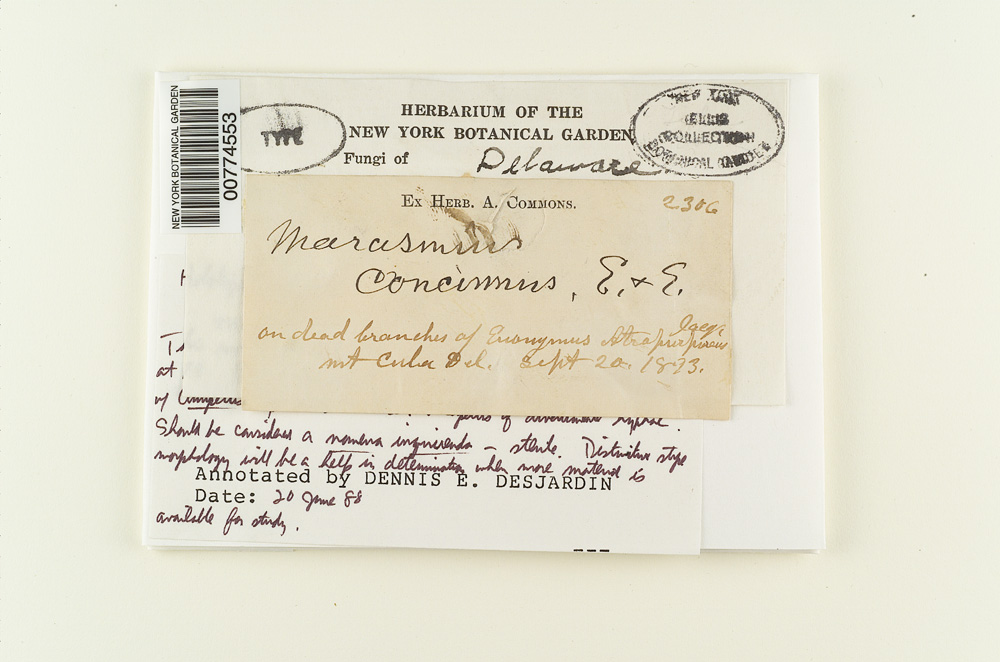 NEW YORK BOTANICAL GARDEN
00774553
TYPE
HERBARIUM OF THE
NEW YORK BOTANICAL GARDEN
Fungi of Delaware
NEW YORK
ELLIS
COLLECTION
BOTANICAL GARDEN
Ex Herb. A. Commons.
2306
Marasmius
Concinnus, E. & E.
on dead branches of Euonymus Atropurpureus Jacq.
mt Cuba Del. Sept 20. 1893.
at
w/
Should be considered a nomena inquirenda – sterile. Distinctive stipe
morphology will be a help in determination when more material is
Annotated by DENNIS E. DESJARDIN
Date: 20 June 88
available for study.